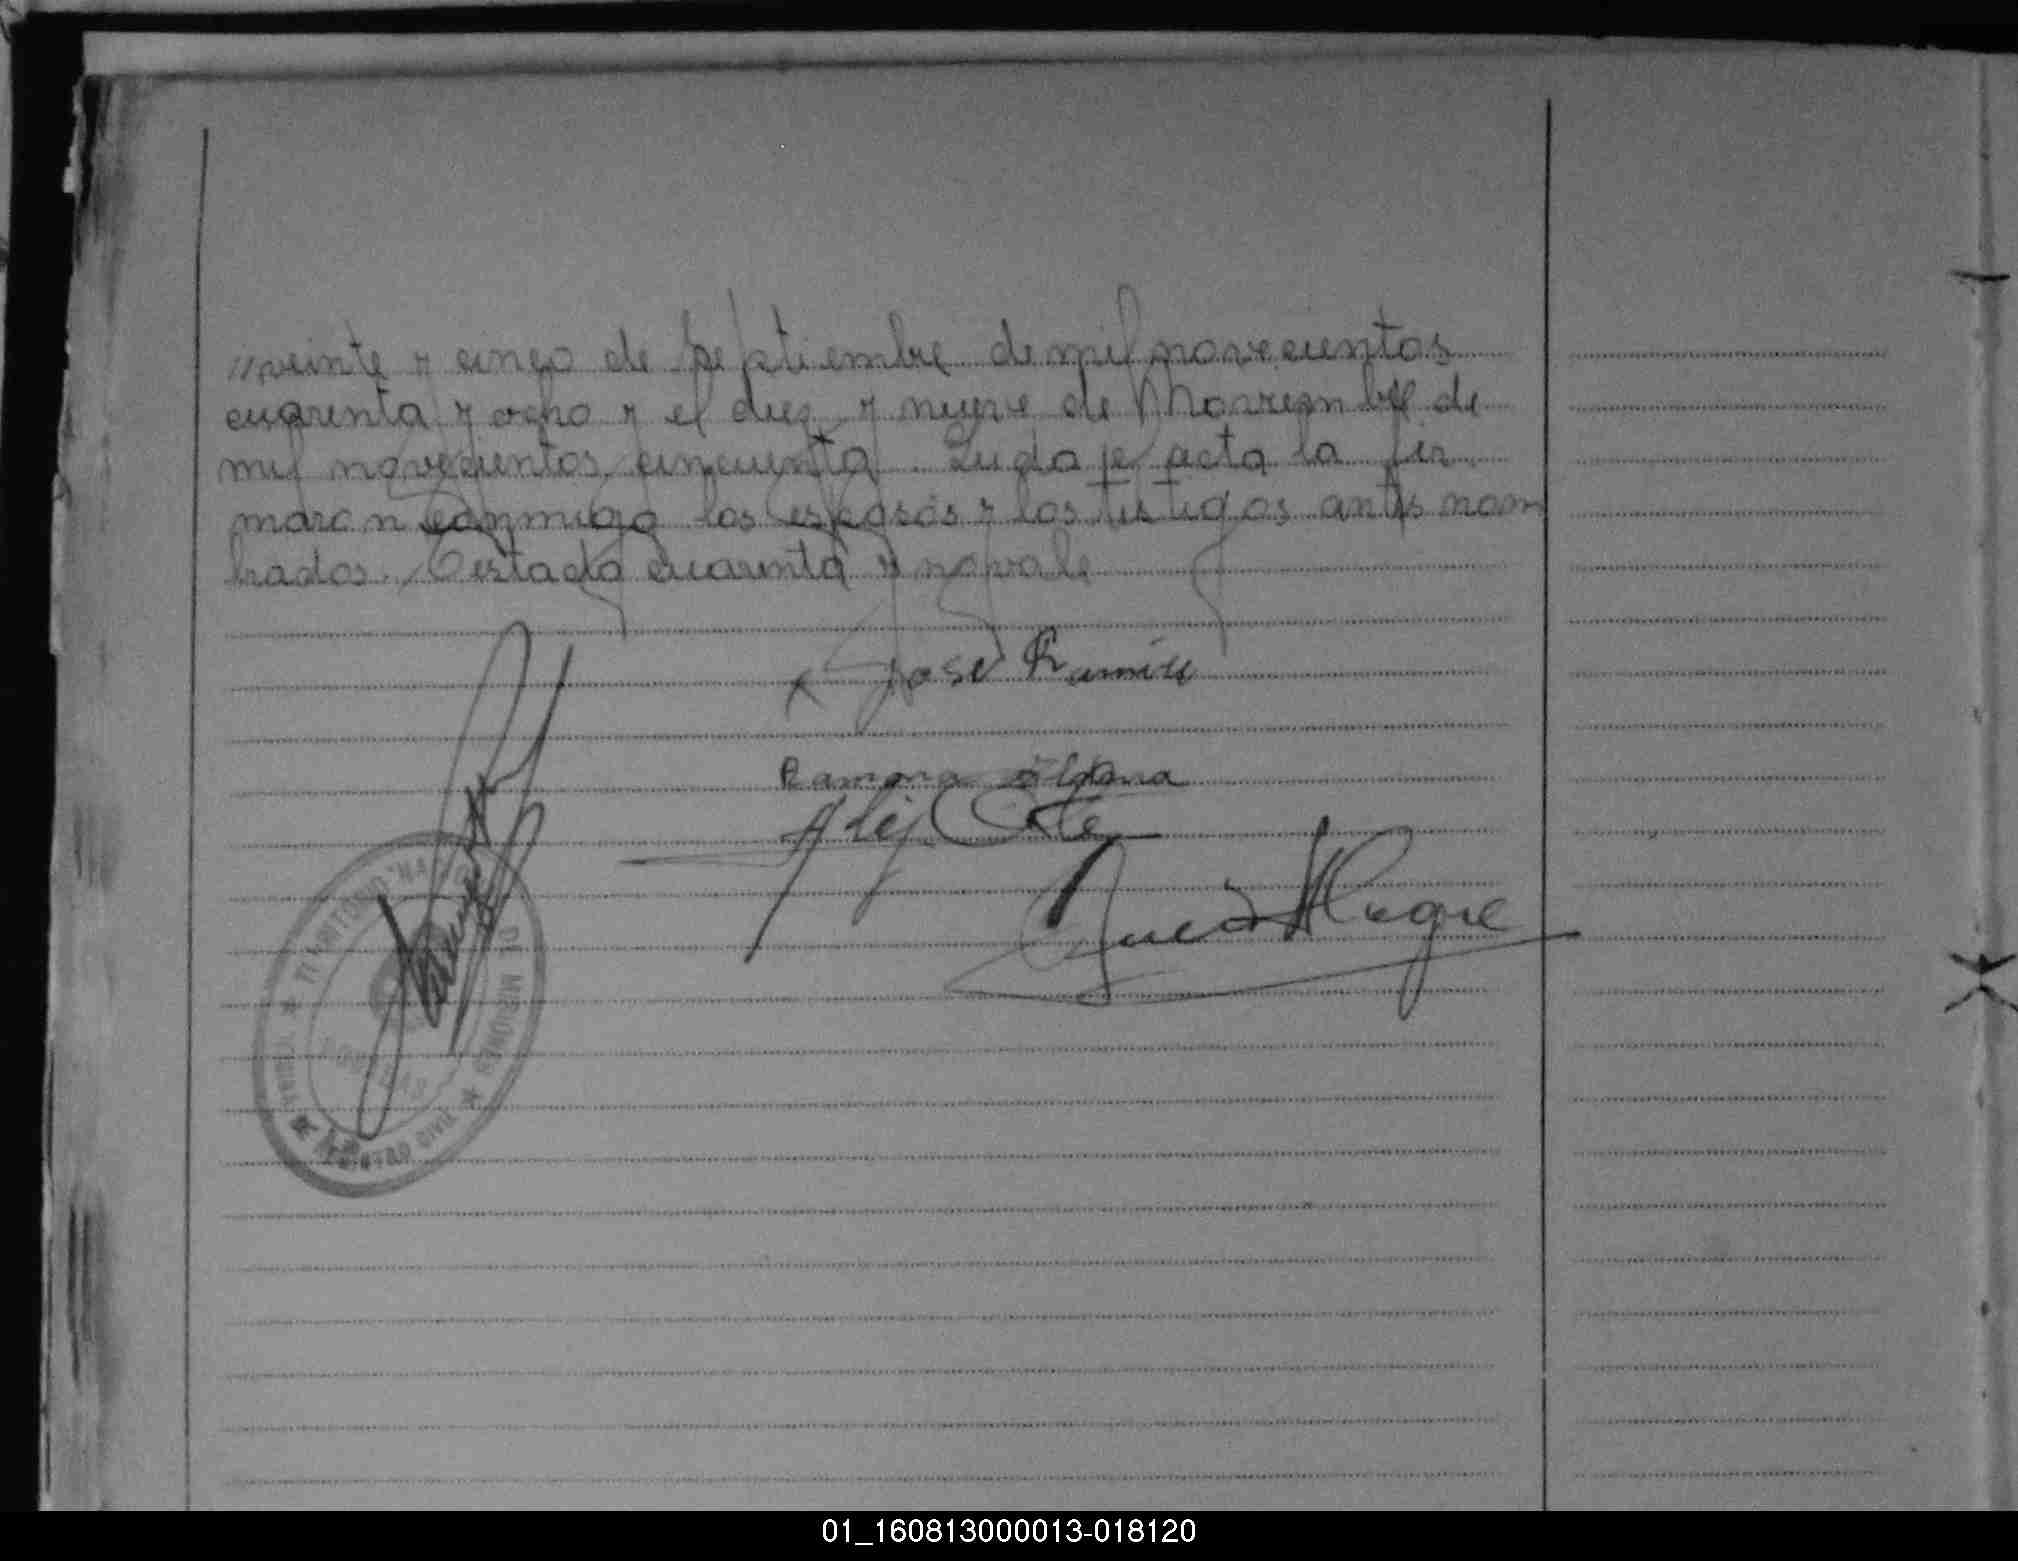 //veinte y cinco de septiembre de mil novecientos
cuarenta y ocho y el diez y nueve de Noviembre de
mil novecientos cincuenta. Leida el acta la fir
maron conmigo los esposos y los testigos antes nom
brados. Testado cuarenta y no vale
x Jose Ramire
Ramona Aldana
Alej.
Alegre
TERRITORIO NAC. DE MISIONES
REGISTRO CIVIL
01_160813000013-018120